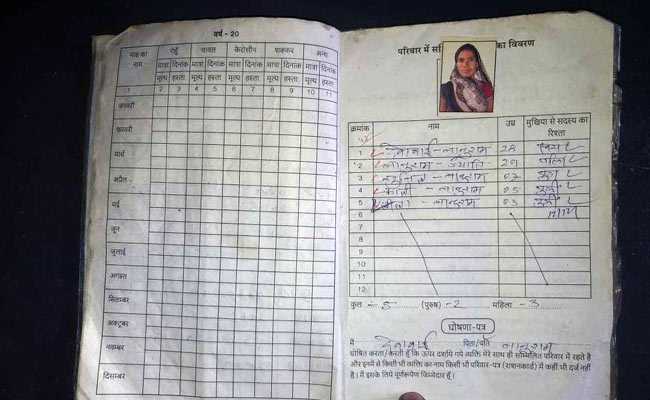 वर्ष - 20
माह का नाम गेहूँ चावल केरोसीन शक्कर अन्य
मात्रा दिनांक मात्रा दिनांक मात्रा दिनांक मात्रा दिनांक मात्रा दिनांक
मूल्य हस्ता मूल्य हस्ता मूल्य हस्ता मूल्य हस्ता मूल्य हस्ता
1 2 3 4 5 6 7 8 9 10 11
जनवरी
फरवरी
मार्च
अप्रैल
मई
जून
जुलाई
अगस्त
सितम्बर
अक्टूबर
नवम्बर
दिसम्बर
परिवार में का विवरण
क्रमांक नाम उम्र मुखिया से सदस्य का रिश्ता
1 लालुराम 28
2 लालुराम
3 लालुराम 07
4 लालुराम 05
5 लालुराम 03
6
7
8
9
10
11
12
कुल - 5 (पुरुष) - 2 महिला - 3
घोषणा-पत्र
मैं पिता/पति लालुराम
घोषित करता/करती हूँ कि ऊपर दर्शाये गये व्यक्ति मेरे साथ ही सम्मिलित परिवार में रहते है
और इनमें से किसी भी व्यक्ति का नाम किसी भी परिवार-पत्र (राशनकार्ड) में कहीं भी दर्ज नहीं
है। मैं इसके लिये पूर्णरूपेण जिम्मेदार हूँ।